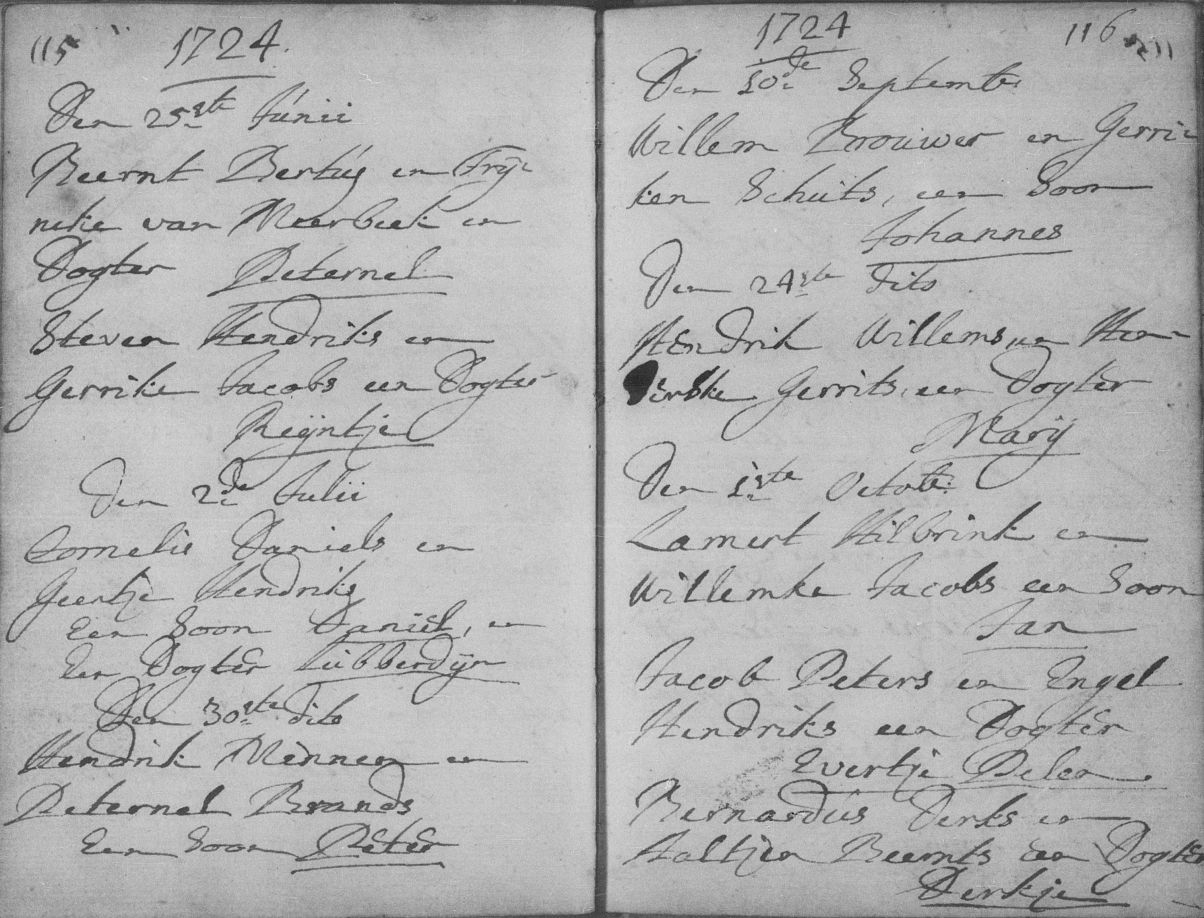 115
1724.
Den 25ste Junii
Beernt Bertus en Trij-
neke van Meerbeek en
Dogter Peternel
Steven Hendriks en
Gerrike Jacobs een Dogter
Reijntje
Den 2de Julii
Cornelis Daniels en
Geertje Hendriks
Een Soon Daniel, en
Een Dogter Lubberdijn
Den 30ste dito
Hendrik Mennen en
Peternel Brands
Een Soon Peter
1724
116
Den 10de Septemb:
Willem Brouwer en Gerri-
ken Schuts, een Soon
Johannes
Den 24ste dito
Hendrik Willems, en Hen-
Gerrits, een Dogter
Marij
Den 1ste Octob:
Lamert Hilbrink en
Willemke Jacobs een Soon
Jan
Jacob Peters en Engel
Hendriks een Dogter
Evertje
Bernardus Derks en
Aaltjen Beernts een Dogter
Derkje